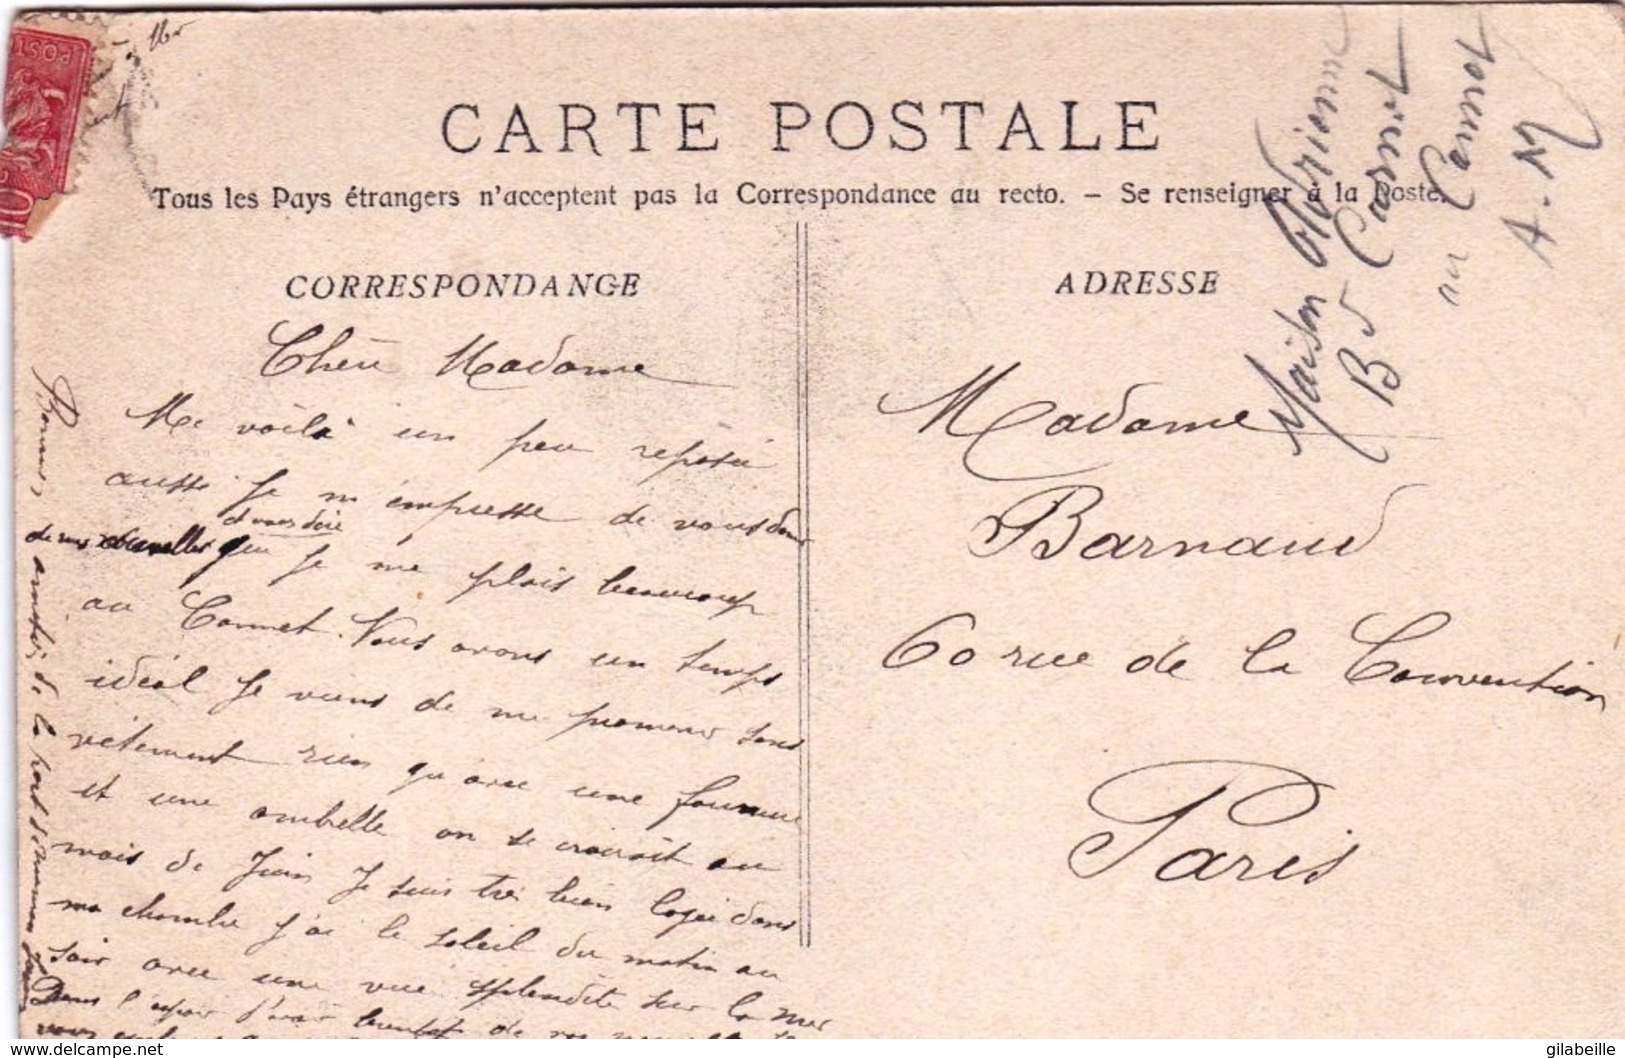 CARTE POSTALE
Tous les Pays étrangers n'acceptent pas la Correspondance au recto. – Se renseigner à la Poste.
CORRESPONDANCE
Chère Madame
Me voilà un peu reposée
aussi je m'empresse de vous donner
de mes nouvelles et vous dire que je me plais beaucoup
au Cannet. Nous avons un temps
idéal je viens de me promener sans
vêtement rien qu'avec une fourrure
et une ombrelle on se croirait au
mois de Juin Je suis très bien logée dans
ma chambre j'ai le soleil du matin au
soir avec une vue splendide sur la mer
Dans l'espoir d'avoir bientôt de vos nouvelles
vous
Bonnes amitiés de la part
ADRESSE
Madame
Barnaud
60 rue de la Convention
Paris
Maison
Bd Carnot
au Cannet
A. M
gilabeille